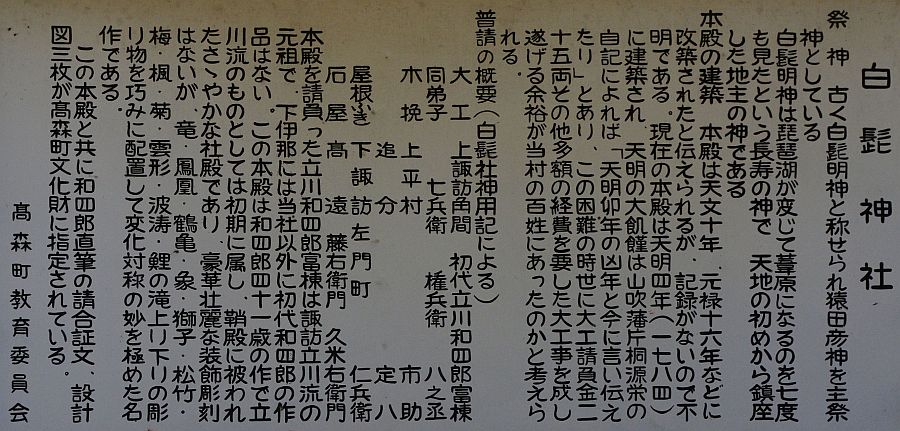 白髭神社
祭神 古く白髭明神と称せられ猿田彦神を主祭
神としている
白髭明神は琵琶湖が変じて葦原になるのを七度
も見たという長寿の神で、天地の初めから鎮座
した地主の神である
本殿の建築 本殿は天文十年、元禄十六年などに
改築されたと伝えられるが、記録がないので不
明である。現在の本殿は天明四年(一七八四)
に建築され、天明の大飢饉は山吹藩片桐源栄の
自記によれば「天明卯年の凶年と今に言い伝え
たり」とあり、この困難の時世に大工請負金二
十五両その他多額の経費を要した大工事を成し
遂げる余裕が当村の百姓にあったのかと考えら
れる。
普請の概要(白髭社神用記による)
大工 上諏訪角間 初代立川和四郎富棟
同弟子 七兵衛 権兵衛 八之丞
木挽 上平村 市助
追分 定八
屋根ふき 下諏訪左門町 仁兵衛
石屋 髙遠 藤右衛門 久米右衛門
本殿を請負った立川和四郎富棟は諏訪立川流の
元祖で、下伊那には当社以外に初代和四郎の作
品はない。この本殿は和四郎四十一歳の作で立
川流のものとしては初期に属し、鞘殿に被われ
たさゝやかな社殿であり、豪華壮麗な装飾彫刻
はないが、竜・鳳凰・鶴亀・象・獅子・松竹・
梅・楓・菊・雲形・波涛・鯉の滝上り下りの彫
り物を巧みに配置して変化対称の妙を極めた名
作である。
この本殿と共に和四郎直筆の請合証文、設計
図三枚が髙森町文化財に指定されている。
髙森町教育委員会